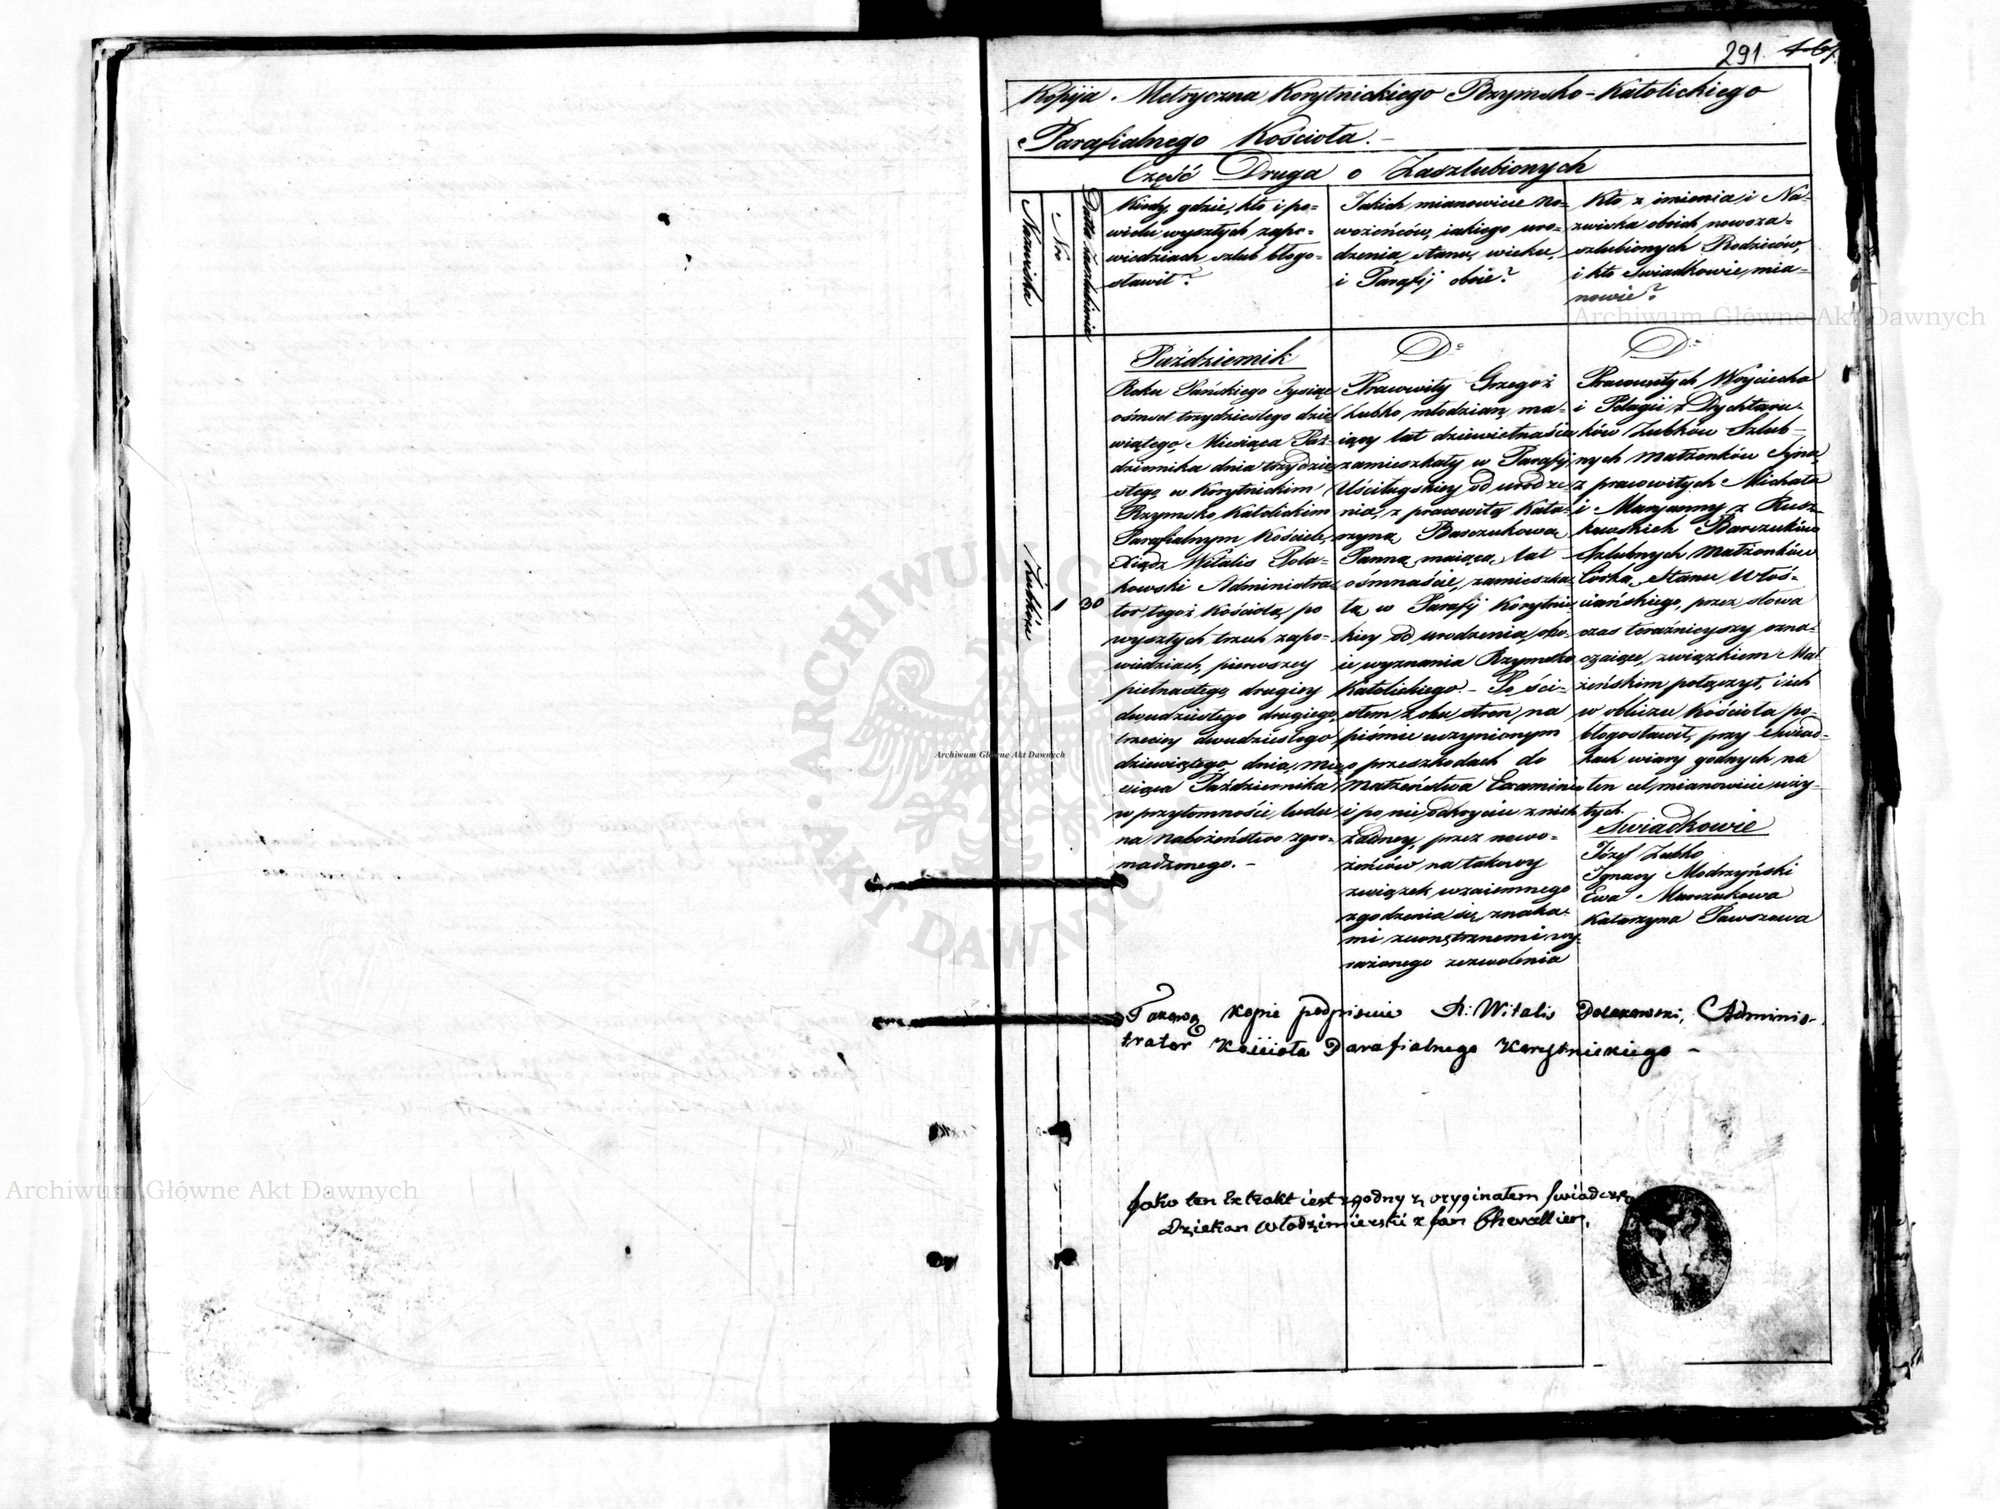 291. 467
Kopija Metryczna Korytnickiego Rzymsko-Katolickiego
Parafialnego Kościoła.-
Część Druga o Zaszlubionych
Nazwiska
Nro
Datta Zaszlubienia
Kiedy, gdzie, kto i po
wielu wyszłych zapo-
wiedziach szlub błogo-
sławił?
Jakich mianowicie no-
wożeńców, iakiego uro-
dzenia, stanu, wieku,
i Parafij oboie?
Kto z imienia i Na-
zwiska oboich nowoza-
szlubionych Rodziców,
i kto Swiadkowie, mia-
nowie?
Żubków
1
30
Październik
Roku Pańskiego Tysiąc
ośmset trzydziestego dzie
wiątego, Miesiąca Paź-
dziernika dnia trzydzie
stego, w Korytnickim
Rzymsko Katolickim
Parafialnym Kościele,
Xiądz Witalis Pola-
kowski Administra-
tor tegoż Kościoła, po
wyszłych trzech zapo-
wiedziach, pierwszey
pietnastego, drugiey
dwudziestego drugiego,
trzeciey dwudziestego
dziewiątego, dnia, Mie-
siąca Października
w przytomności ludu
na Nabożeństwo zgro-
madzonego.-
Do
Pracowity Grzegoż
Żubko, młodzian, ma-
iący lat dziewietnaście
zamieszkały w Parafij
Uściługskiey od urodze-
nia, z pracowitą Kata-
rzyną Barczukową
Panną, maiącą lat
ośmnaście, zamieszka-
łą w Parafij Korytnic-
kiey od urodzenia, obo-
ie wyznania Rzymsko
Katolickiego.- Po ści-
słem z obu stron na
piśmie uczynionym
o przeszkodach do
Małżeństwa Examinie
i po nie odkryciu z nich
żadney, przez nowo-
żeńców na takowy
związek wzaiemnego
zgodzenia się, znaka-
mi zewnętrznemi wy-
rażonego zezwolenia
Do
Pracowitych Woyciecha
i Pelagii z Dychtaru-
ków Żubków Szlub-
nych Małżonków Syna,
z pracowitych Michała
i Maryanny z Rusz-
kowskich Barczuków
Szlubnych Małżonków
Córką, Stanu Włoś-
ciańskiego, przez słowa
czas teraźnieyszy ozna-
czaiące, związkiem Mał-
żeńskim połączył, i ich
w obliczu Kościoła po-
błogosławił, przy Swiad-
kach wiary godnych na
ten cel mianowicie uży-
tych.
Swiadkowie
Józef Żubko
Ignacy Modrzyński
Ewa Marczukowa
Katarzyna Pawszowa
Takową Kopie podpisuie X: Witalis Polakowski, Adminis-
trator Kościoła Parafialnego Korytnickiego -
Jako ten Extrakt iest zgodny z oryginałem swiadczę
Dziekan Włodzimierski X Jan Chevallier.
Archiwum Główne Akt Dawnych
Archiwum Główne Akt Dawnych
Archiwum Główne Akt Dawnych
ARCHIWUM GŁÓWNE AKT DAWNYCH